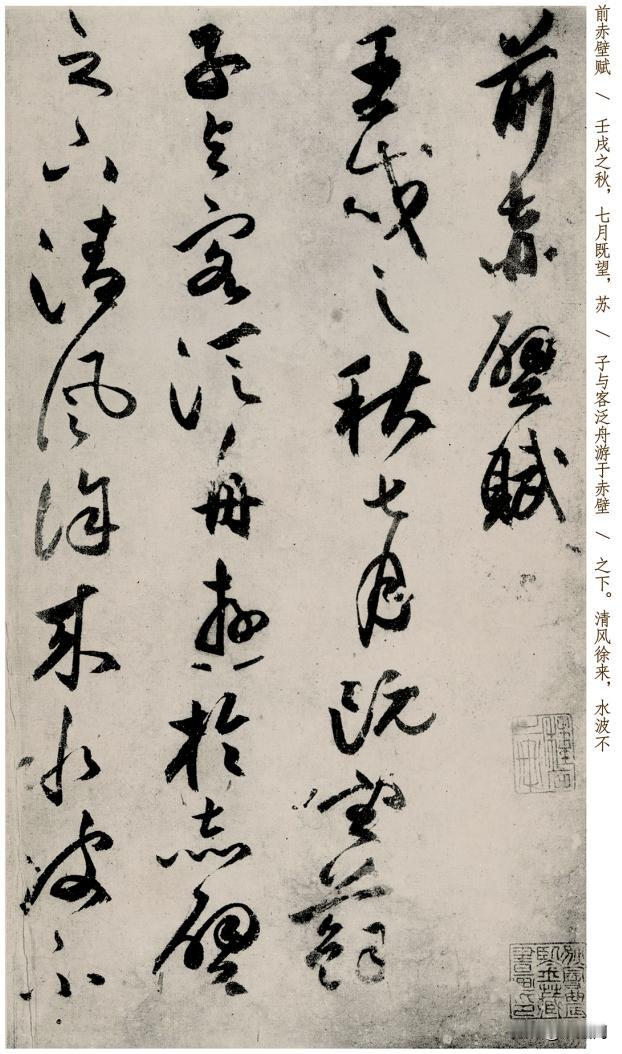 前赤壁賦
壬戌之秋七月既望蘇
子與客泛舟遊於赤壁
之下清風徐來水波不
前赤壁赋 / 壬戌之秋，七月既望，苏 / 子与客泛舟游于赤壁 / 之下。清风徐来，水波不